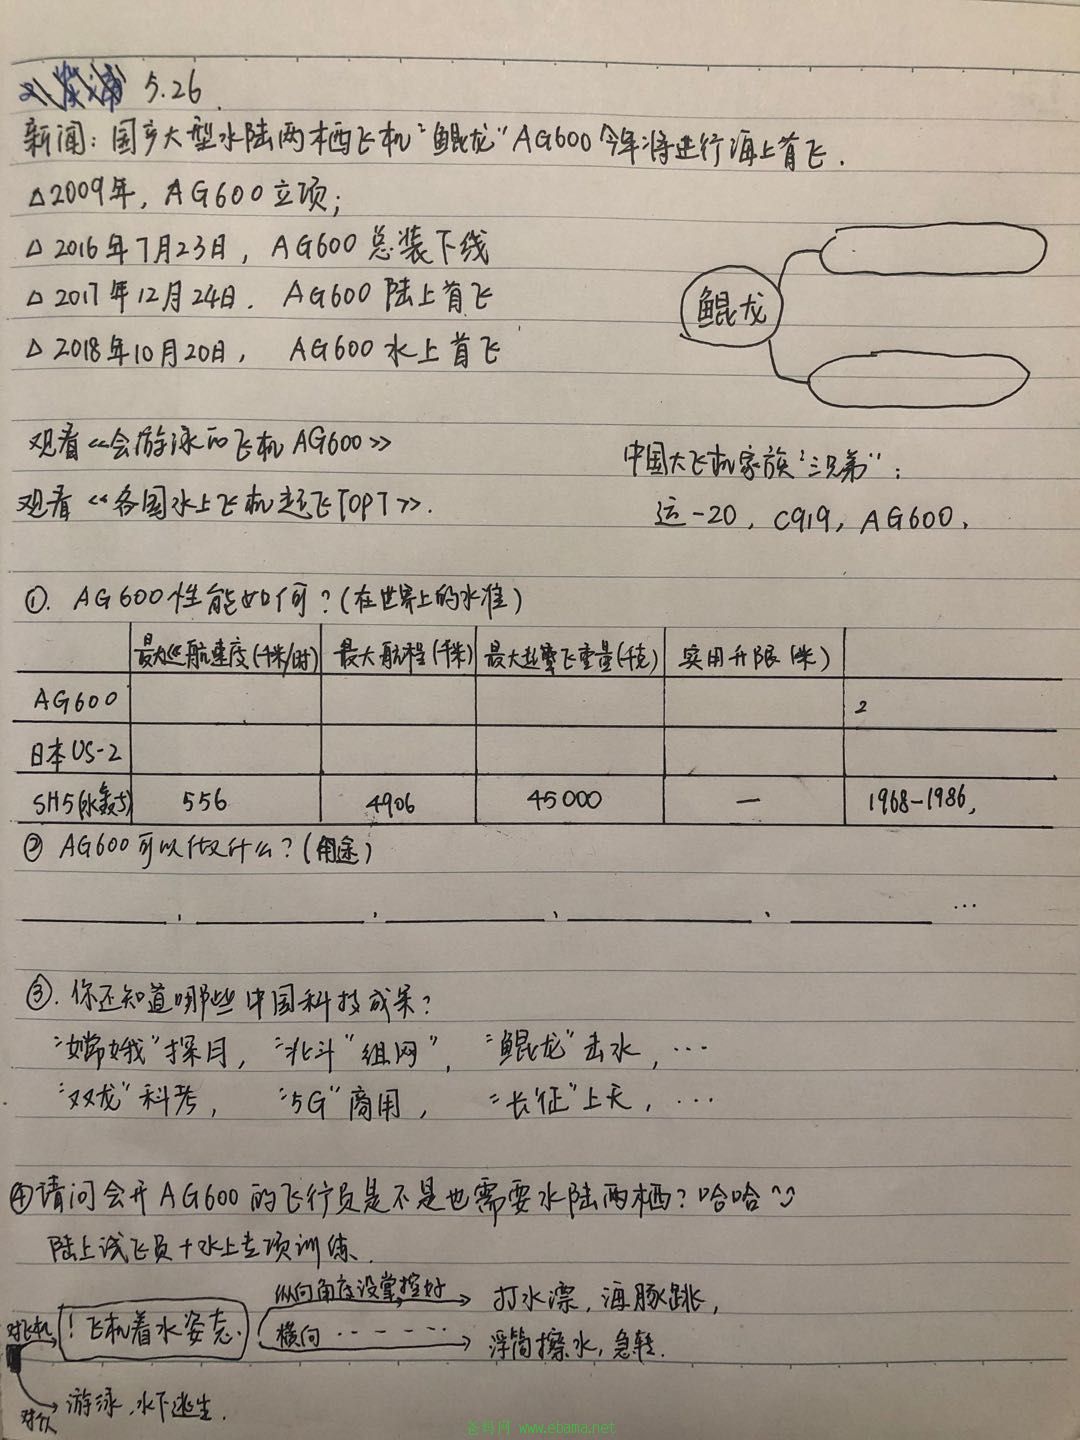 5.26
新闻：国产大型水陆两栖飞机"鲲龙"AG600今年将进行海上首飞.
△2009年，AG600立项；
△2016年7月23日，AG600总装下线
△2017年12月24日. AG600陆上首飞
△2018年10月20日， AG600水上首飞
鲲龙
观看《会游泳的飞机AG600》
观看《各国水上飞机起飞TOP7》.
中国大飞机家族"三兄弟"：
运-20，C919，AG600.
①. AG600性能如何？(在世界上的水准)
最大巡航速度(千米/时) 最大航程(千米) 最大起飞重量(千克) 实用升限(米)
AG600 2
日本US-2
SH5(水轰5) 556 4906 45000 — 1968-1986,
② AG600可以做什么？(用途)
、 、 、 、 …
③. 你还知道哪些中国科技成果？
"嫦娥"探月，"北斗"组网"，"鲲龙"击水，…
"双龙"科考，"5G"商用，"长征"上天，…
④请问会开AG600的飞行员是不是也需要水陆两栖？哈哈
陆上试飞员+水上专项训练.
对飞机 ！飞机着水姿态.
纵向角度没掌控好 打水漂，海豚跳，
横向 …… 浮筒擦水，急转.
对人 游泳，水下逃生.
爸妈网 www.ebama.net